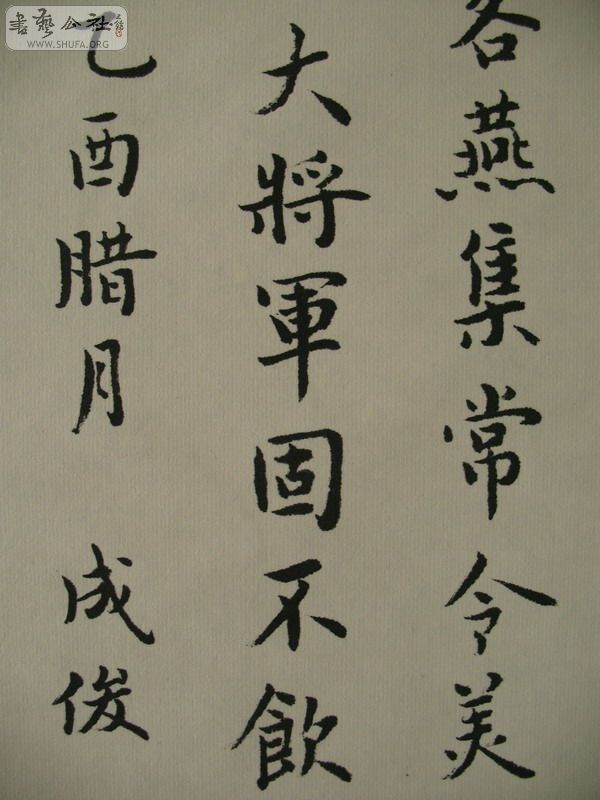 客燕集常令美
大將軍固不飲
乙酉腊月 成俊
書藝公社
WWW.SHUFA.ORG